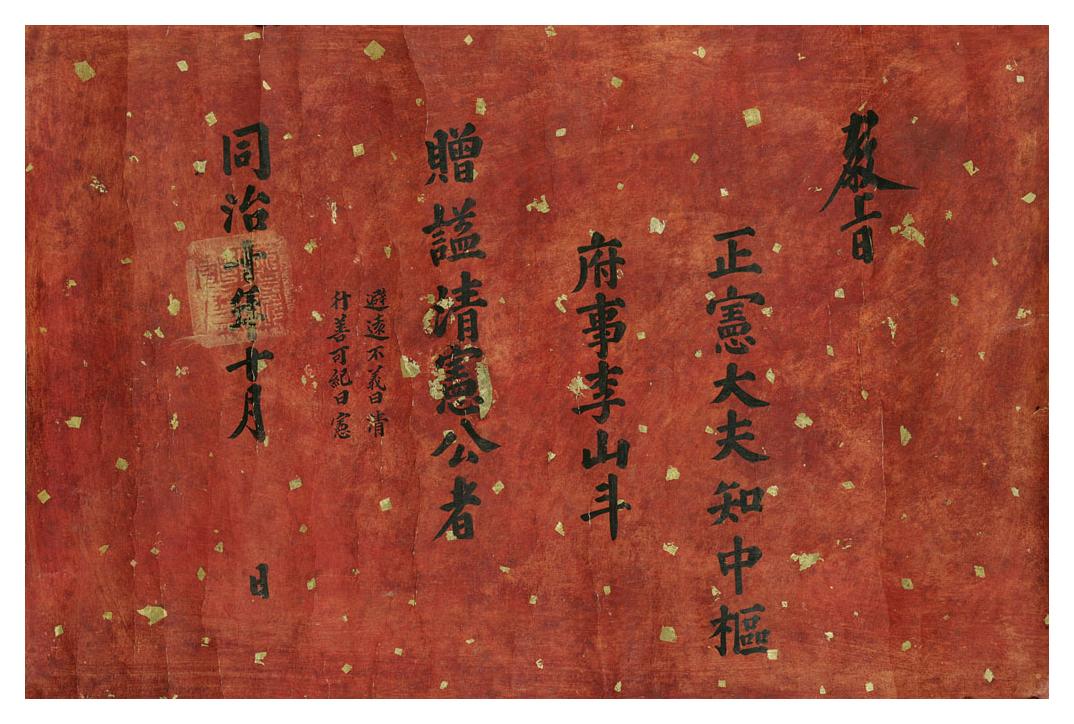 敎旨
正憲大夫知中樞
府事李山斗
贈諡清憲公者
避遠不義曰清
行善可紀曰憲
同治十年十月 日